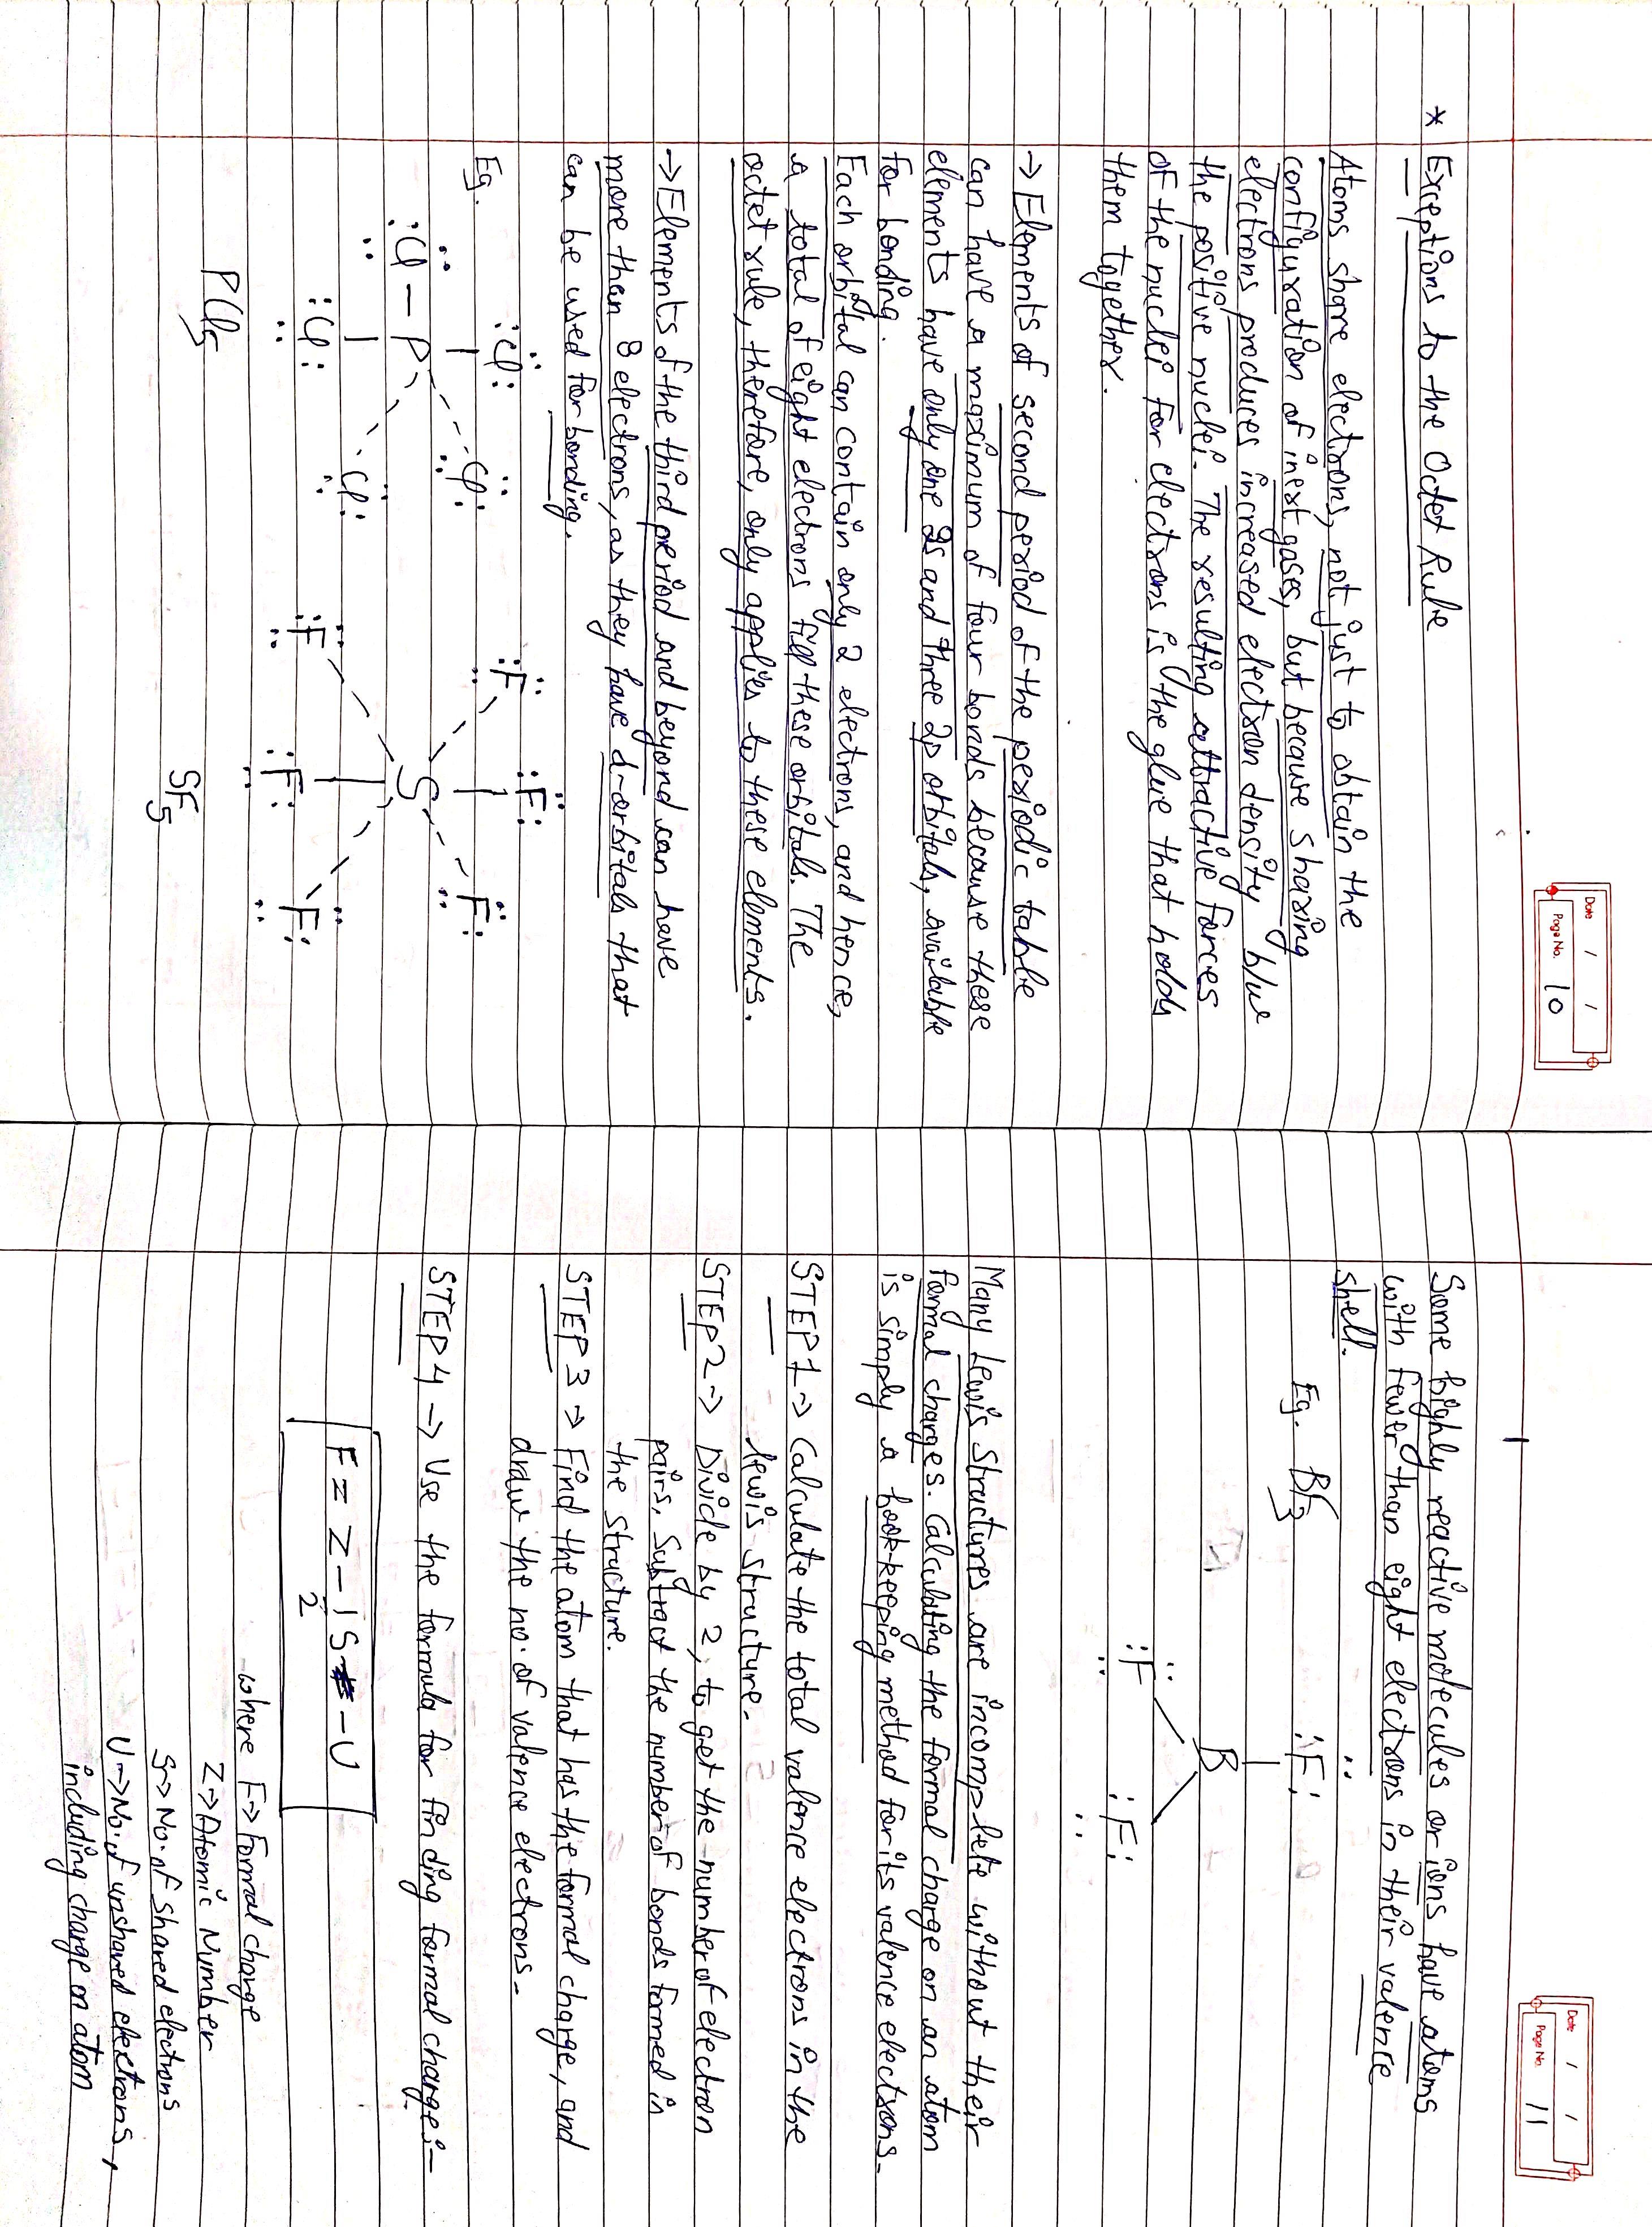 Date / /
Page No. 10
* Exceptions to the Octet Rule
Atoms share electrons, not just to obtain the
configuration of inert gases, but because sharing
electrons produces increased electron density b/w
the positive nuclei. The resulting attractive forces
of the nuclei for electrons is the glue that holds
them together.
→ Elements of second period of the periodic table
can have a maximum of four bonds because these
elements have only one 2s and three 2p orbitals, available
for bonding.
Each orbital can contain only 2 electrons, and hence,
a total of eight electrons fill these orbitals. The
octet rule, therefore, only applies to these elements.
→ Elements of the third period and beyond can have
more than 8 electrons, as they have d-orbitals that
can be used for bonding.
Eg.
:Cl: Cl: :F: F: F:
:Cl - P S
Cl: F
:Cl: :F: F:
PCl5 SF5
Date / /
Page No. 11
Some highly reactive molecules or ions have atoms
with fewer than eight electrons in their valence
shell.
Eg. BF3 :F:
B
:F :F:
Many Lewis Structures are incomplete without their
formal charges. Calculating the formal charge on an atom
is simply a book-keeping method for its valence electrons.
STEP 1 → Calculate the total valence electrons in the
lewis structure.
STEP 2 → Divide by 2, to get the number of electron
pairs. Subtract the number of bonds formed in
the structure.
STEP 3 → Find the atom that has the formal charge, and
draw the no. of valence electrons.
STEP 4 → Use the formula for finding formal charge:-
F = Z - 1/2 S - U
where F → Formal charge
Z → Atomic Number
S → No. of shared electrons
U → No. of unshared electrons,
including charge on atom